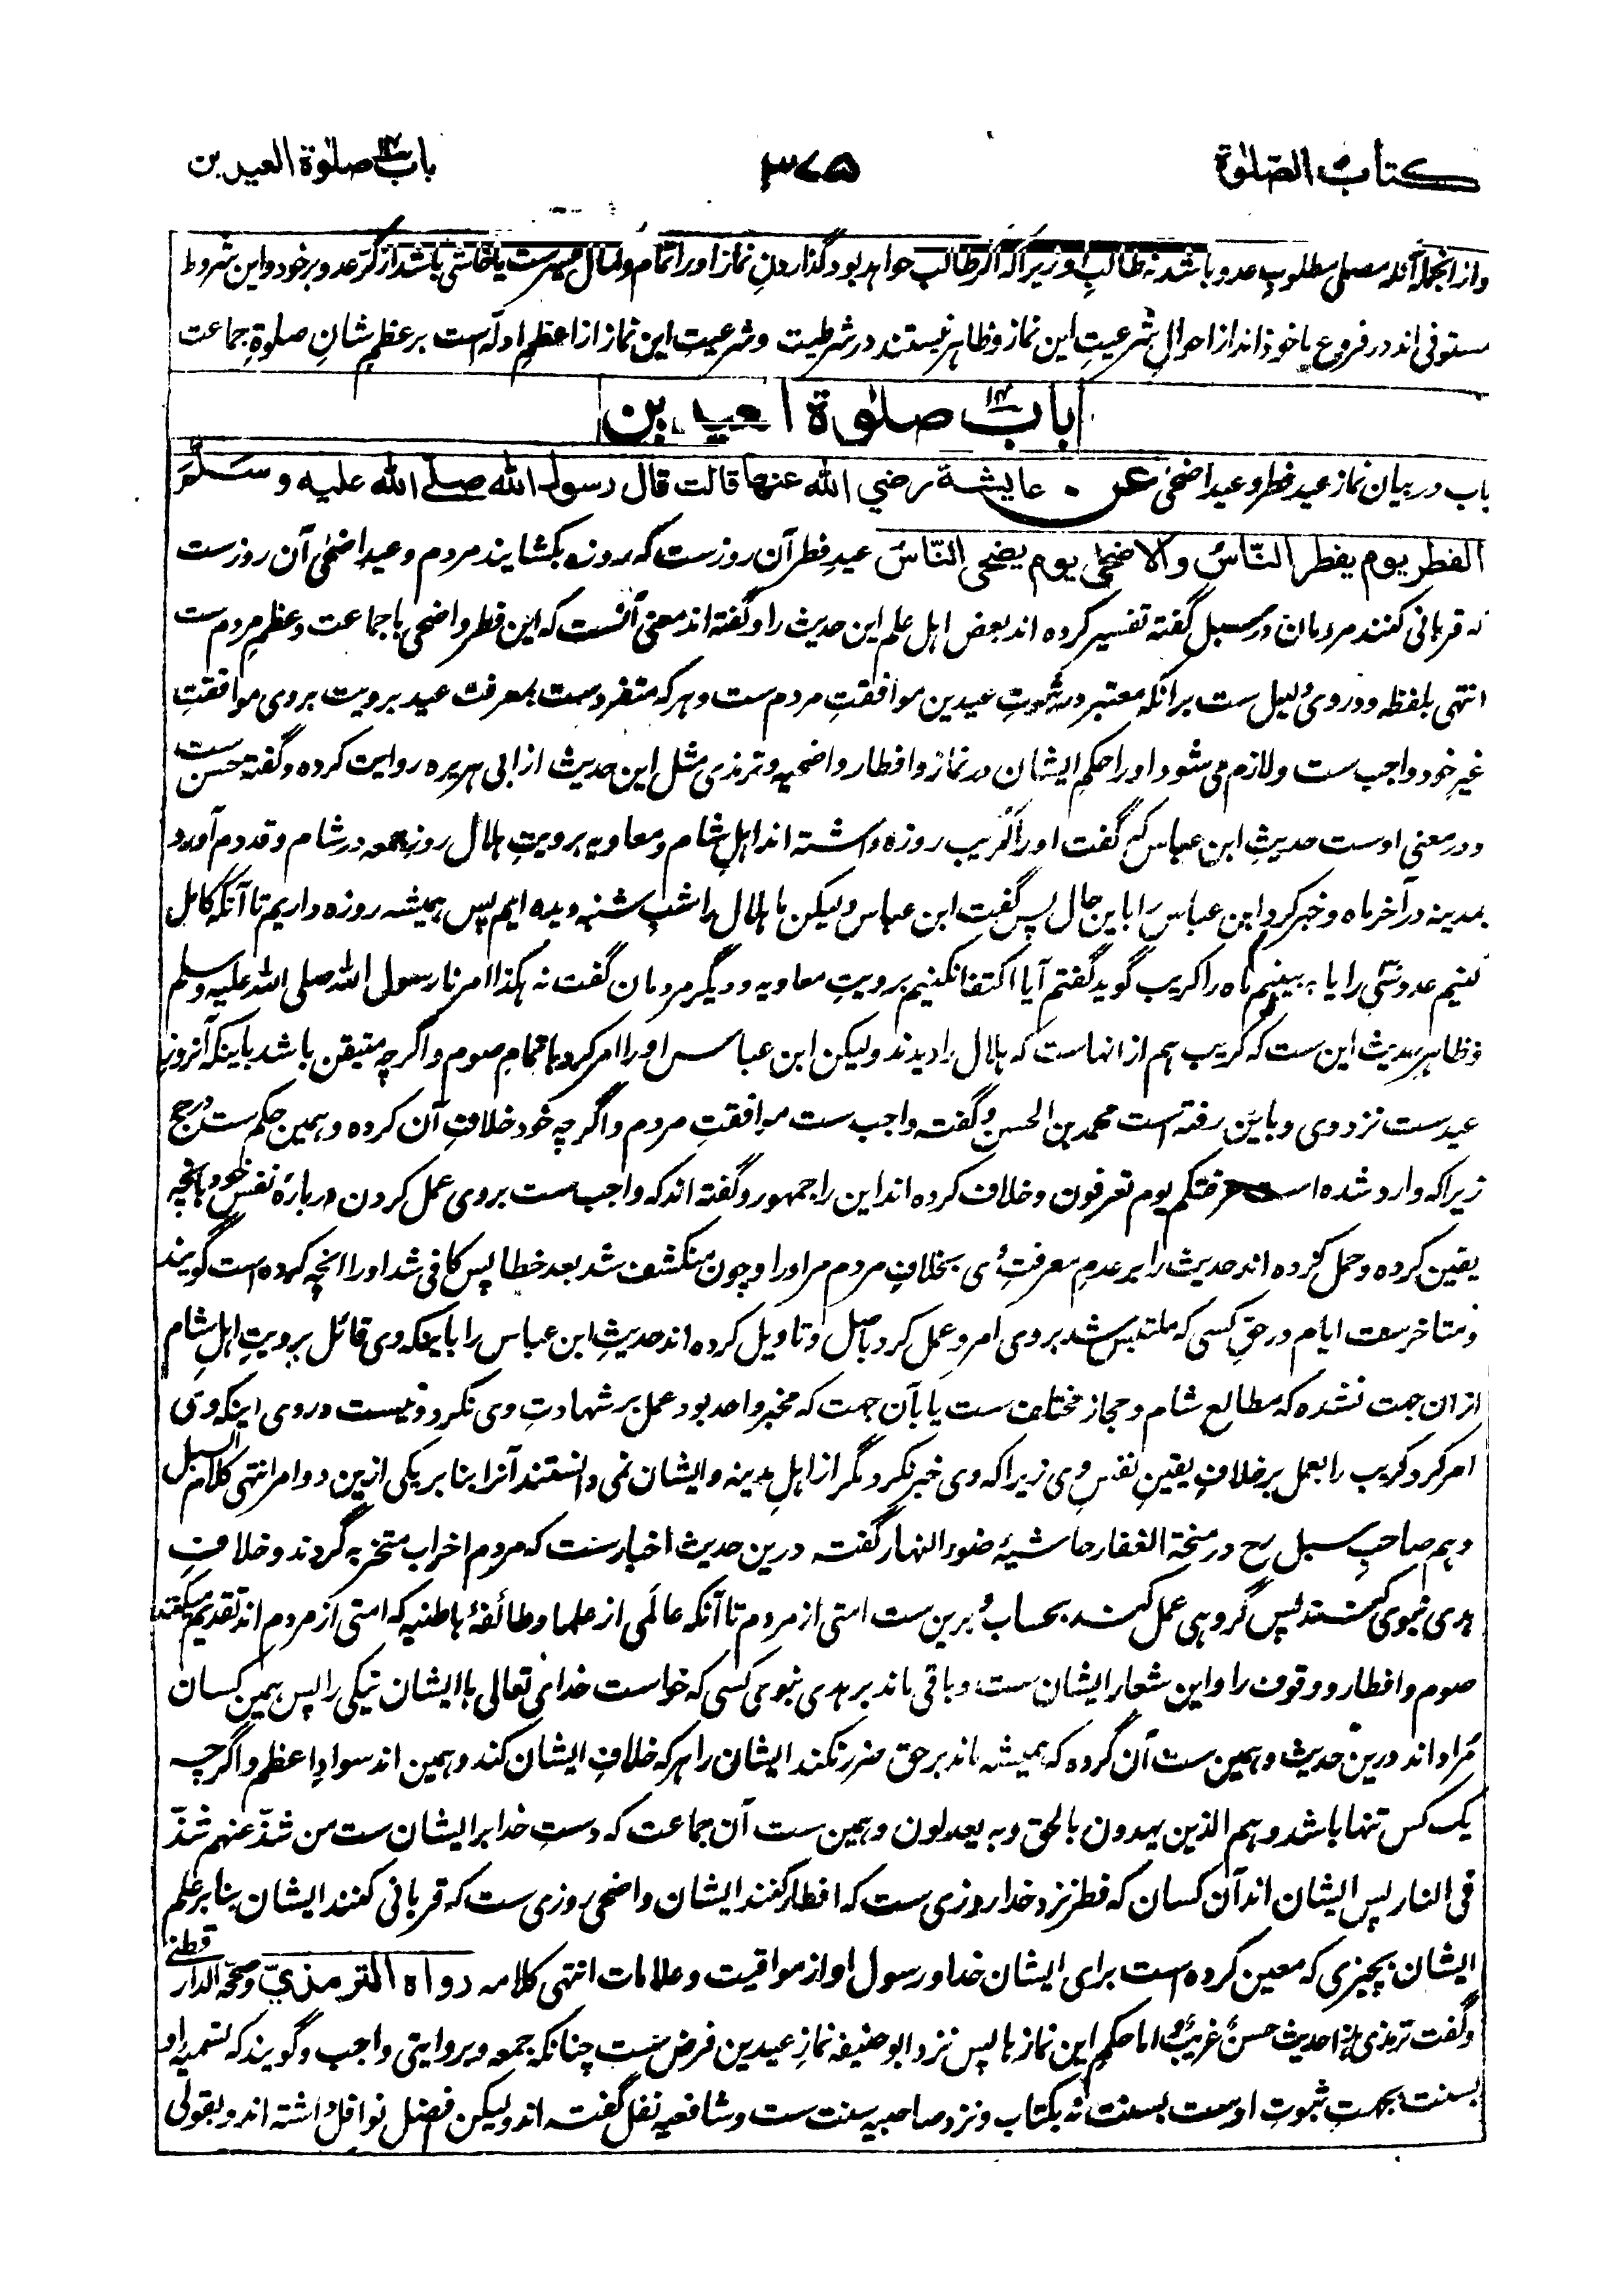 کتاب الصلوٰة ۳۷۵ باب صلوٰة العیدین
وازانجمله آنکه مصلی مطلوبِ عدو باشد نه طالبِ او زیراکه اگر طالب خواهد بود گذاردنِ نماز او را تمام و کمال میسرست یا خاشی باشد از کَرّ عدو بر خود و این شروط
مستوفی اند در فروع ماخوذ اند از احوالِ شرعیتِ این نماز و ظاهر نیستند در شرطیت و شرعیتِ این نماز از اعظم ادله است بر عظمِ شانِ صلوةِ جماعت
باب صلوٰة العیدین
باب در بیان نماز عید فطر و عید اضحیٰ عن عایشة رضي الله عنها قالت قال رسول الله صلے الله علیه و سَلَّمَ
الفطر یوم یفطر النّاسُ والاضحٰی یوم یضحی النّاسُ عیدِ فطر آن روزست که روزه بکشایند مردم و عید اضحٰی آن روزست
که قربانی کنند مردمان در سبل گفته تفسیر کرده اند بعض اهل علم این حدیث را و گفته اند معنی آنست که این فطر و اضحی با جماعت و عظم مردم ست
انتهی بلفظه و دروی دلیل ست برآنکه معتبر در ثبوتِ عیدین موافقتِ مردم ست و هرکه متفردست بمعرفت عید برویت بروی موافقتِ
غیرِ خود واجب ست و لازم می شود او را حکم ایشان در نماز و افطار و اضحیه و ترمذی مثل این حدیث از ابی هریره روایت کرده و گفته حسن ست
و در معنی اوست حدیثِ ابن عباس که گفت او را کریب روزه داشته اند اهلِ شام و معاویه برویتِ هلال روز جمعه در شام و قدوم آورد
بمدینه در آخر ماه و خبر کرد ابن عباس را باین حال پس گفت ابن عباس ولیکن ما هلال را شبِ شنبه دیده ایم پس همیشه روزه داریم تا آنکه کامل
کنیم عدد سی را یا به بینیم ماه را کریب گوید گفتم آیا اکتفا نکنیم برویتِ معاویه و دیگر مردمان گفت نه هکذا امرنا رسول الله صلی الله علیه وسلم
و ظاهر حدیث این ست که کریب هم از انهاست که هلال را دیدند ولیکن ابن عباس او را امر کرد باتمامِ صوم و اگرچه متیقن باشد باینکه آنروز
عیدست نزد وی و باین رفته است محمد بن الحسن و گفته واجب ست موافقتِ مردم و اگرچه خود خلافِ آن کرده و همین حکم ست در حج
زیراکه وارد شده است عرفتکم یوم تعرفون و خلاف کرده اند این را جمهور و گفته اند که واجب ست بروی عمل کردن در بارهٔ نفس خود بانچه
یقین کرده و حمل کرده اند حدیث را بر عدمِ معرفتِ وی بخلافِ مردم مر او را و چون منکشف شد بعد خطا پس کافی شد او را انچه کرده است گویند
و متاخرست ایام در حقِ کسی که ملتبس شد بروی امر و عمل کرد باصل و تاویل کرده اند حدیثِ ابن عباس را باینکه وی قائل برویتِ اهلِ شام
ازان جهت نشده که مطالع شام و حجاز مختلف ست یا بآن جهت که مخبر واحد بود عمل بر شهادتِ وی نکرد و نیست در وی اینکه وی
امر کرد کریب را بعمل بر خلافِ یقینِ نفسِ وی زیراکه وی خبر نکرد مگر از اهلِ مدینه و ایشان نمی دانستند آنرا بنا بر یکی ازین دو امر انتهی کلام السبل
و هم صاحبِ سبل رح در منحة الغفار حاشیهٔ ضوء النهار گفته درین حدیث اخبارست که مردم احزاب متحزبه گردند و خلافِ
هدی نبوی کنند پس گروهی عمل کنند بحساب و برین ست امتی از مردم تا آنکه عالَمی از علما و طائفهٔ باطنیه که امتی از مردم اند تقدیم میکنند
صوم و افطار و وقوف را و این شعار ایشان ست و باقی ماند بر هدی نبوی کسی که خواست خدای تعالی باایشان نیکی را پس همین کسان
مراد اند درین حدیث و همین ست آن گروه که همیشه ماند بر حق ضرر نکند ایشان را هرکه خلافِ ایشان کند و همین اند سوادِ اعظم و اگرچه
یک کس تنها باشد و هم الذین یهدون بالحق و به یعدلون و همین ست آن جماعت که دستِ خدا بر ایشان ست من شذّ عنهم شذّ
فی النار پس ایشان اند آن کسان که فطر نزد خدا روزی ست که افطار کنند ایشان و اضحی روزی ست که قربانی کنند ایشان بنا بر علم
ایشان بچیزی که معین کرده است برای ایشان خدا و رسول او از مواقیت و علامات انتهی کلامه رواه الترمذيّ وصحّه الدارقطنے
و گفت ترمذی هذا حدیث حسنٌ غریبٌ و اما حکم این نمازها پس نزد ابو حنیفه نمازِ عیدین فرض ست چنانکه جمعه و بروایتی واجب و گویند که تسمیهٔ او
بسنت بجهتِ ثبوتِ اوست بسنت نه بکتاب و نزد صاحبیه سنت ست و شافعیه نفل گفته اند ولیکن فضل نوافل داشته اند و بقولی